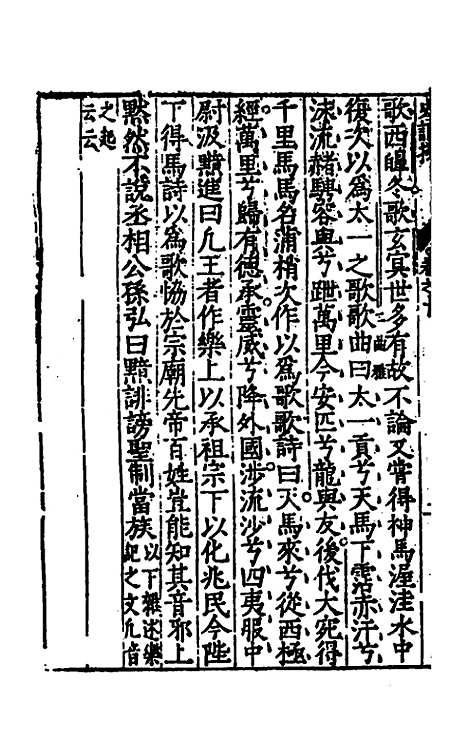 歌西皞冬歌玄冥世多有故不論又嘗得神馬渥洼水中
復次以爲太一之歌歌曲曰太一貢兮天馬下霑赤汗兮
沫流赭騁容與兮跇萬里今安匹兮龍與友後伐大宛得
千里馬馬名蒲梢次作以爲歌歌詩曰天馬來兮從西極
經萬里兮歸有德承靈威兮降外國涉流沙兮四夷服中
尉汲黯進曰凡王者作樂上以承祖宗下以化兆民今陛
下得馬詩以爲歌協於宗廟先帝百姓豈能知其音邪上
黙然不說丞相公孫弘曰黯誹謗聖制當族以下雜述樂記之文凡音
之起云云